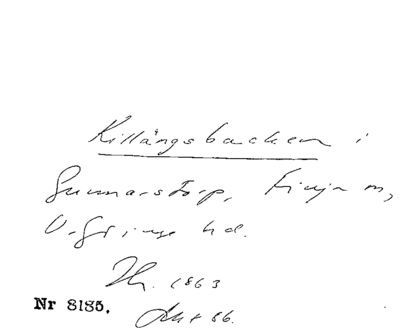 Killängsbacken i
Gunnarstorp, Finja sn,
V. Göinge hd.
1863
Nr 8185.